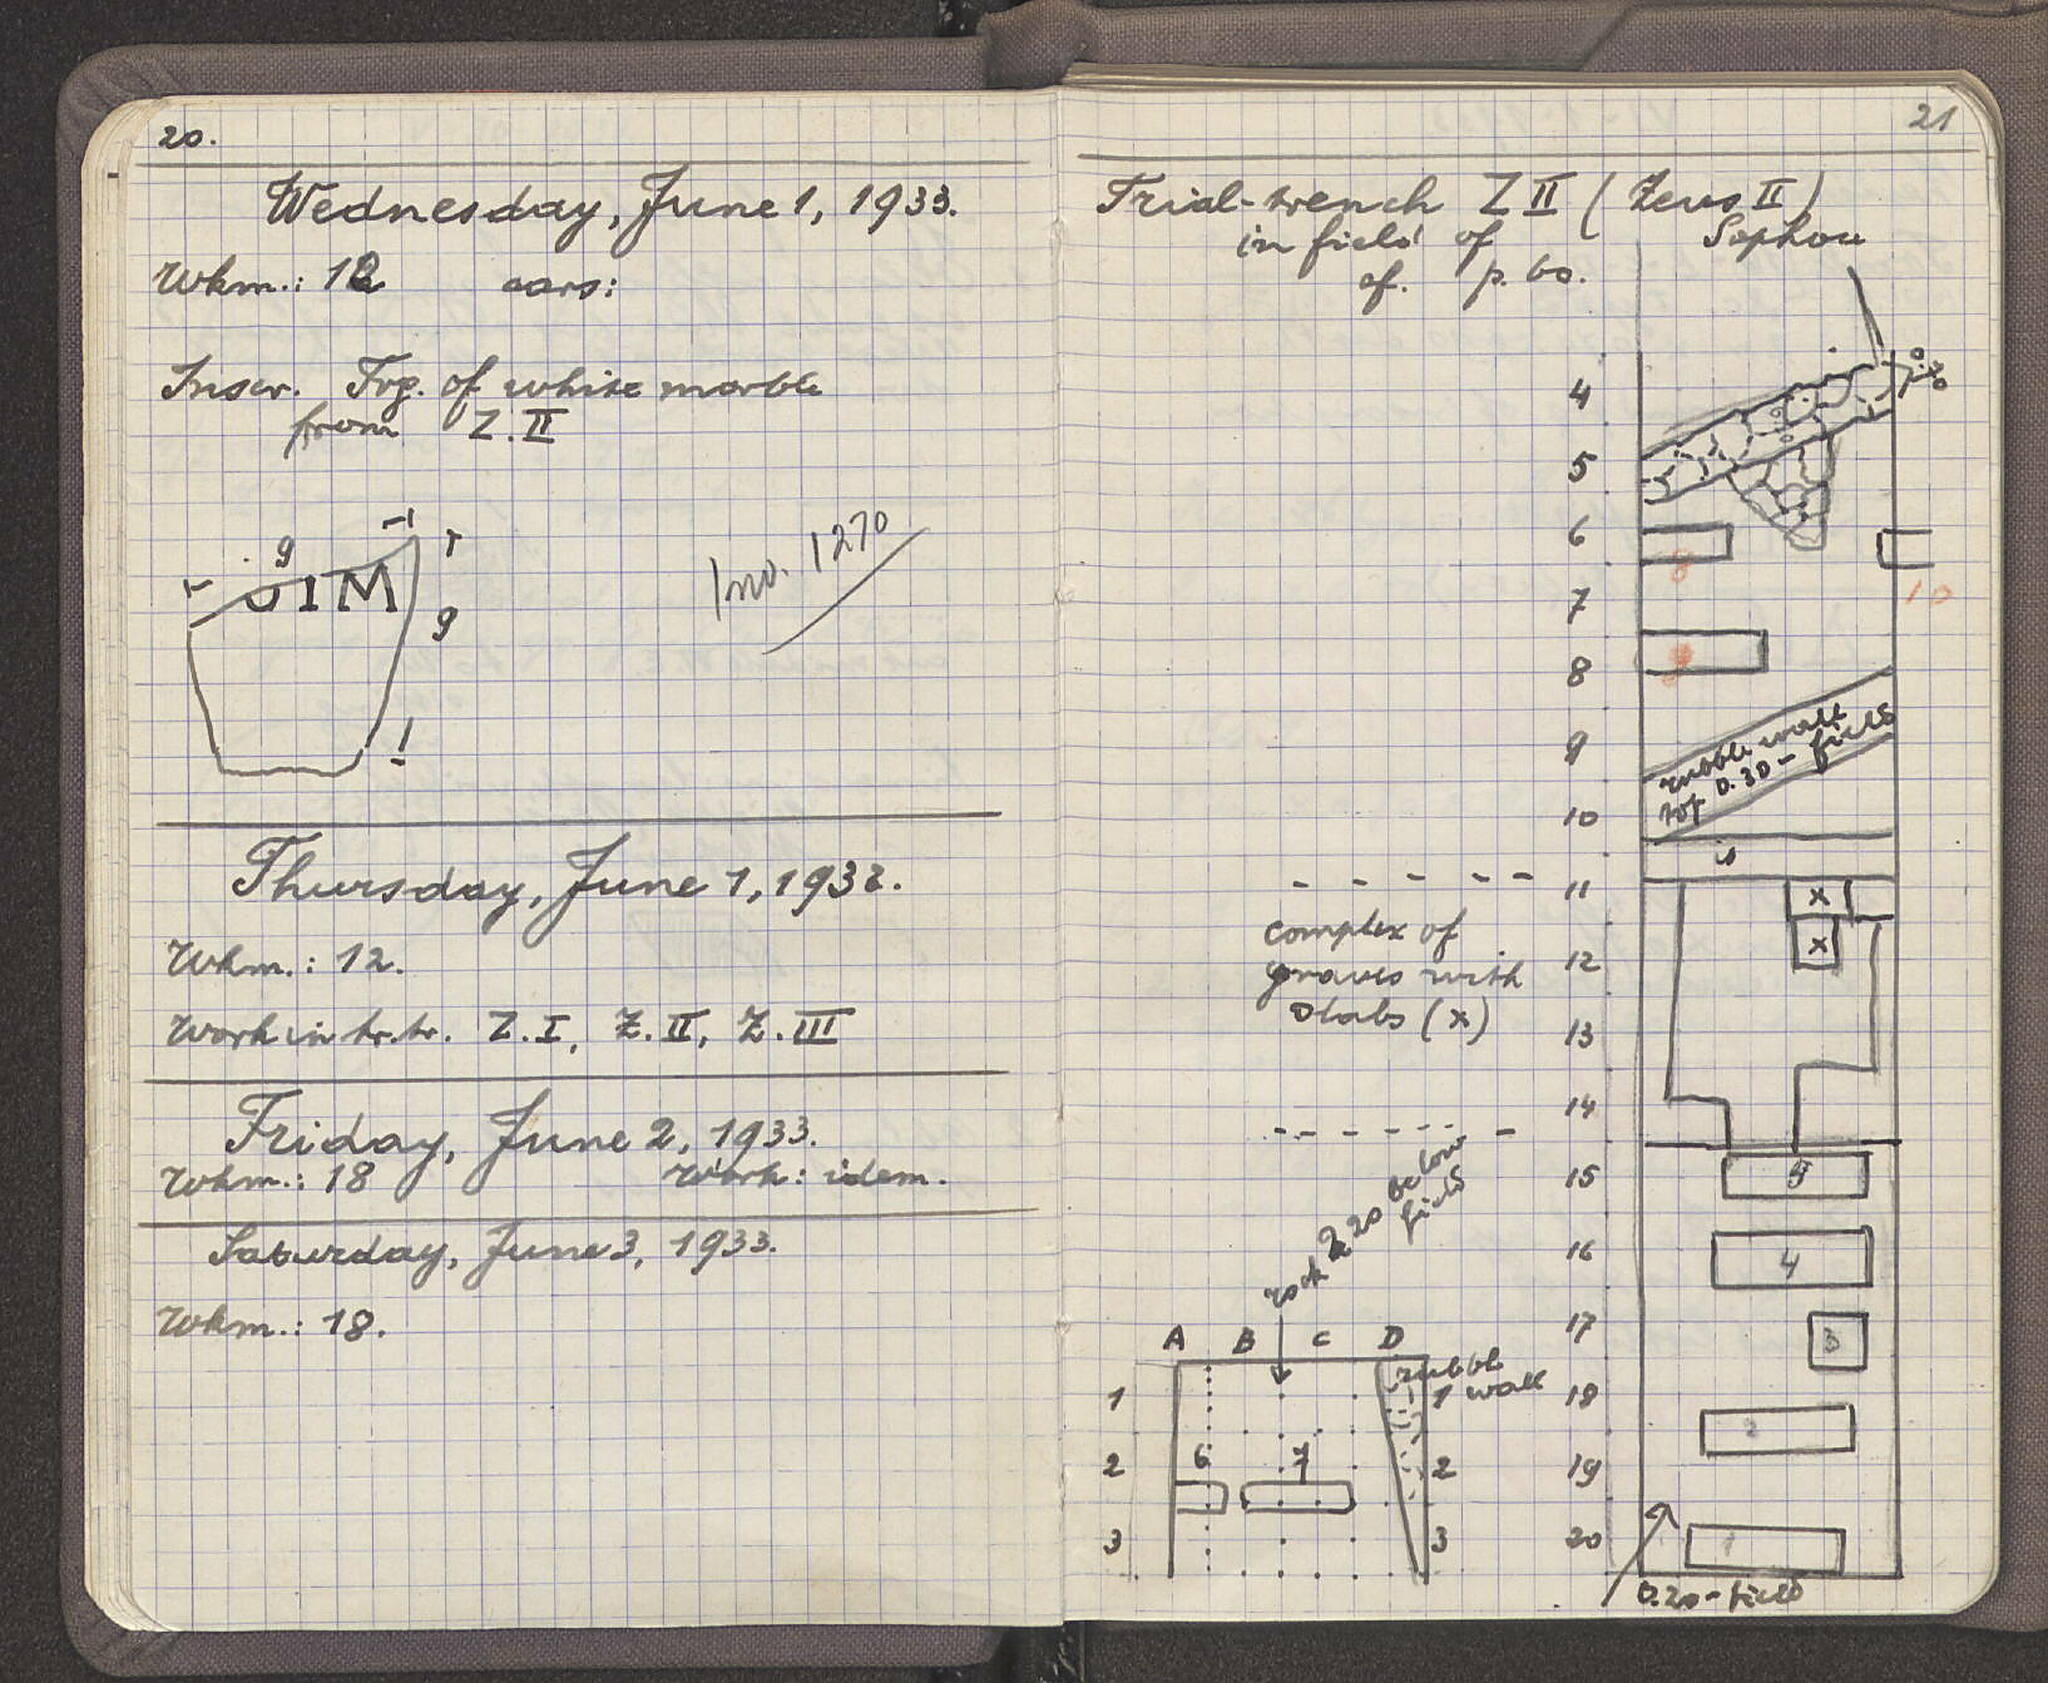 20.
Wednesday, June 1, 1933.
Wkm.: 12 cars:
Inscr. Frg. of white marble
from Z.II
9
IM
9
Inv. 1270
Thursday, June 1, 1933.
Wkm.: 12.
Work in tr.tr. Z.I, Z.II, Z.III
Friday, June 2, 1933.
Wkm.: 18 Work: idem.
Saturday, June 3, 1933.
Wkm.: 18.
21
Trial-trench Z II (Zeus II)
in field of Sophou
cf. p. 60.
4
5
6
8
10
7
8
9
rubble wall
top 0.30 - field
10
11
x
complex of
graves with
slabs (x)
12
x
13
14
15
5
rock 2.20 below
field
16
4
17
3
A B C D
rubble
wall
1
1
18
2
6
7
2
19
2
3
3
20
1
0.20 - field